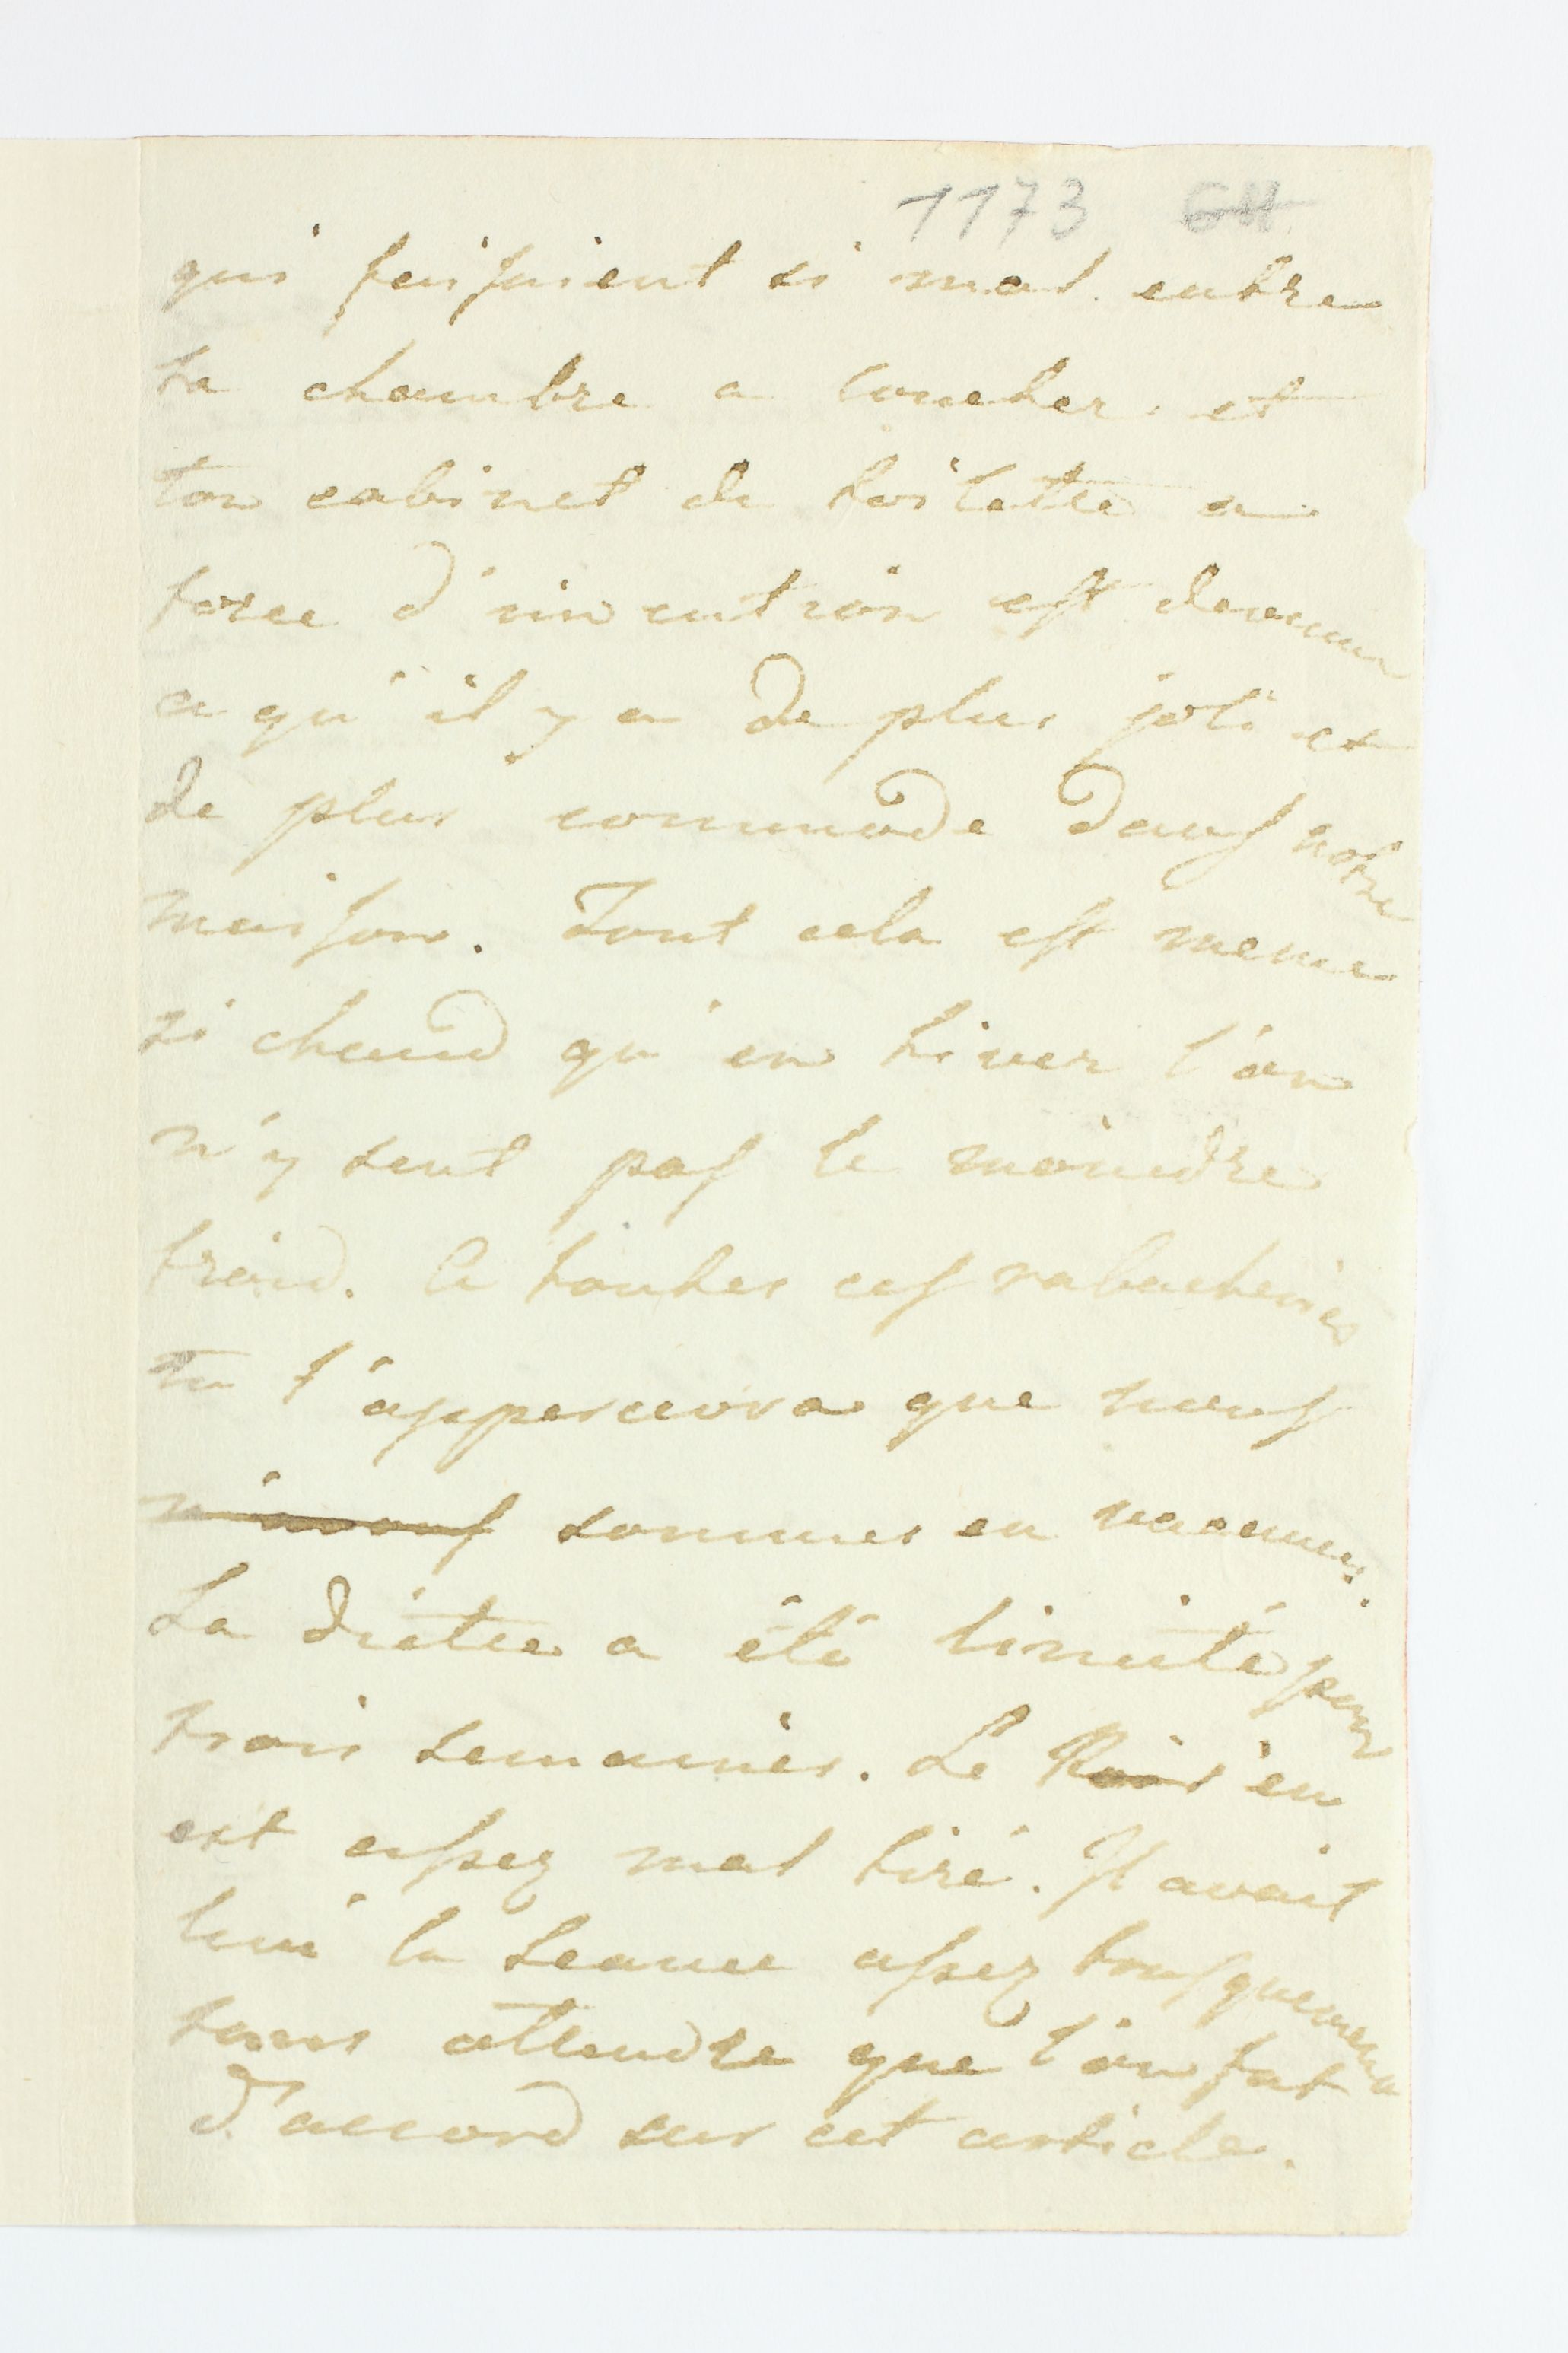 1173 GH
qui faisaient si mal entre
ta chambre a coucher et
ton cabinet de toilette a
force d'invention est devenu
ce qu'il y a de plus joli et
de plus commode dans notre
maison. Tout cela est meme
si chaud qu'en hiver l'on
n'y sent pas le moindre
froid. A toutes ces rabacheries
tu t'apperceuvra que nous
n'avons sommes en vacances.
La diétte a été limité pour
trois semaines. Le Roi s'en
est assez mal tiré. Il avait
levé la seance assez brusquement
sans attendre que l'on fut
d'accord sur cet article.